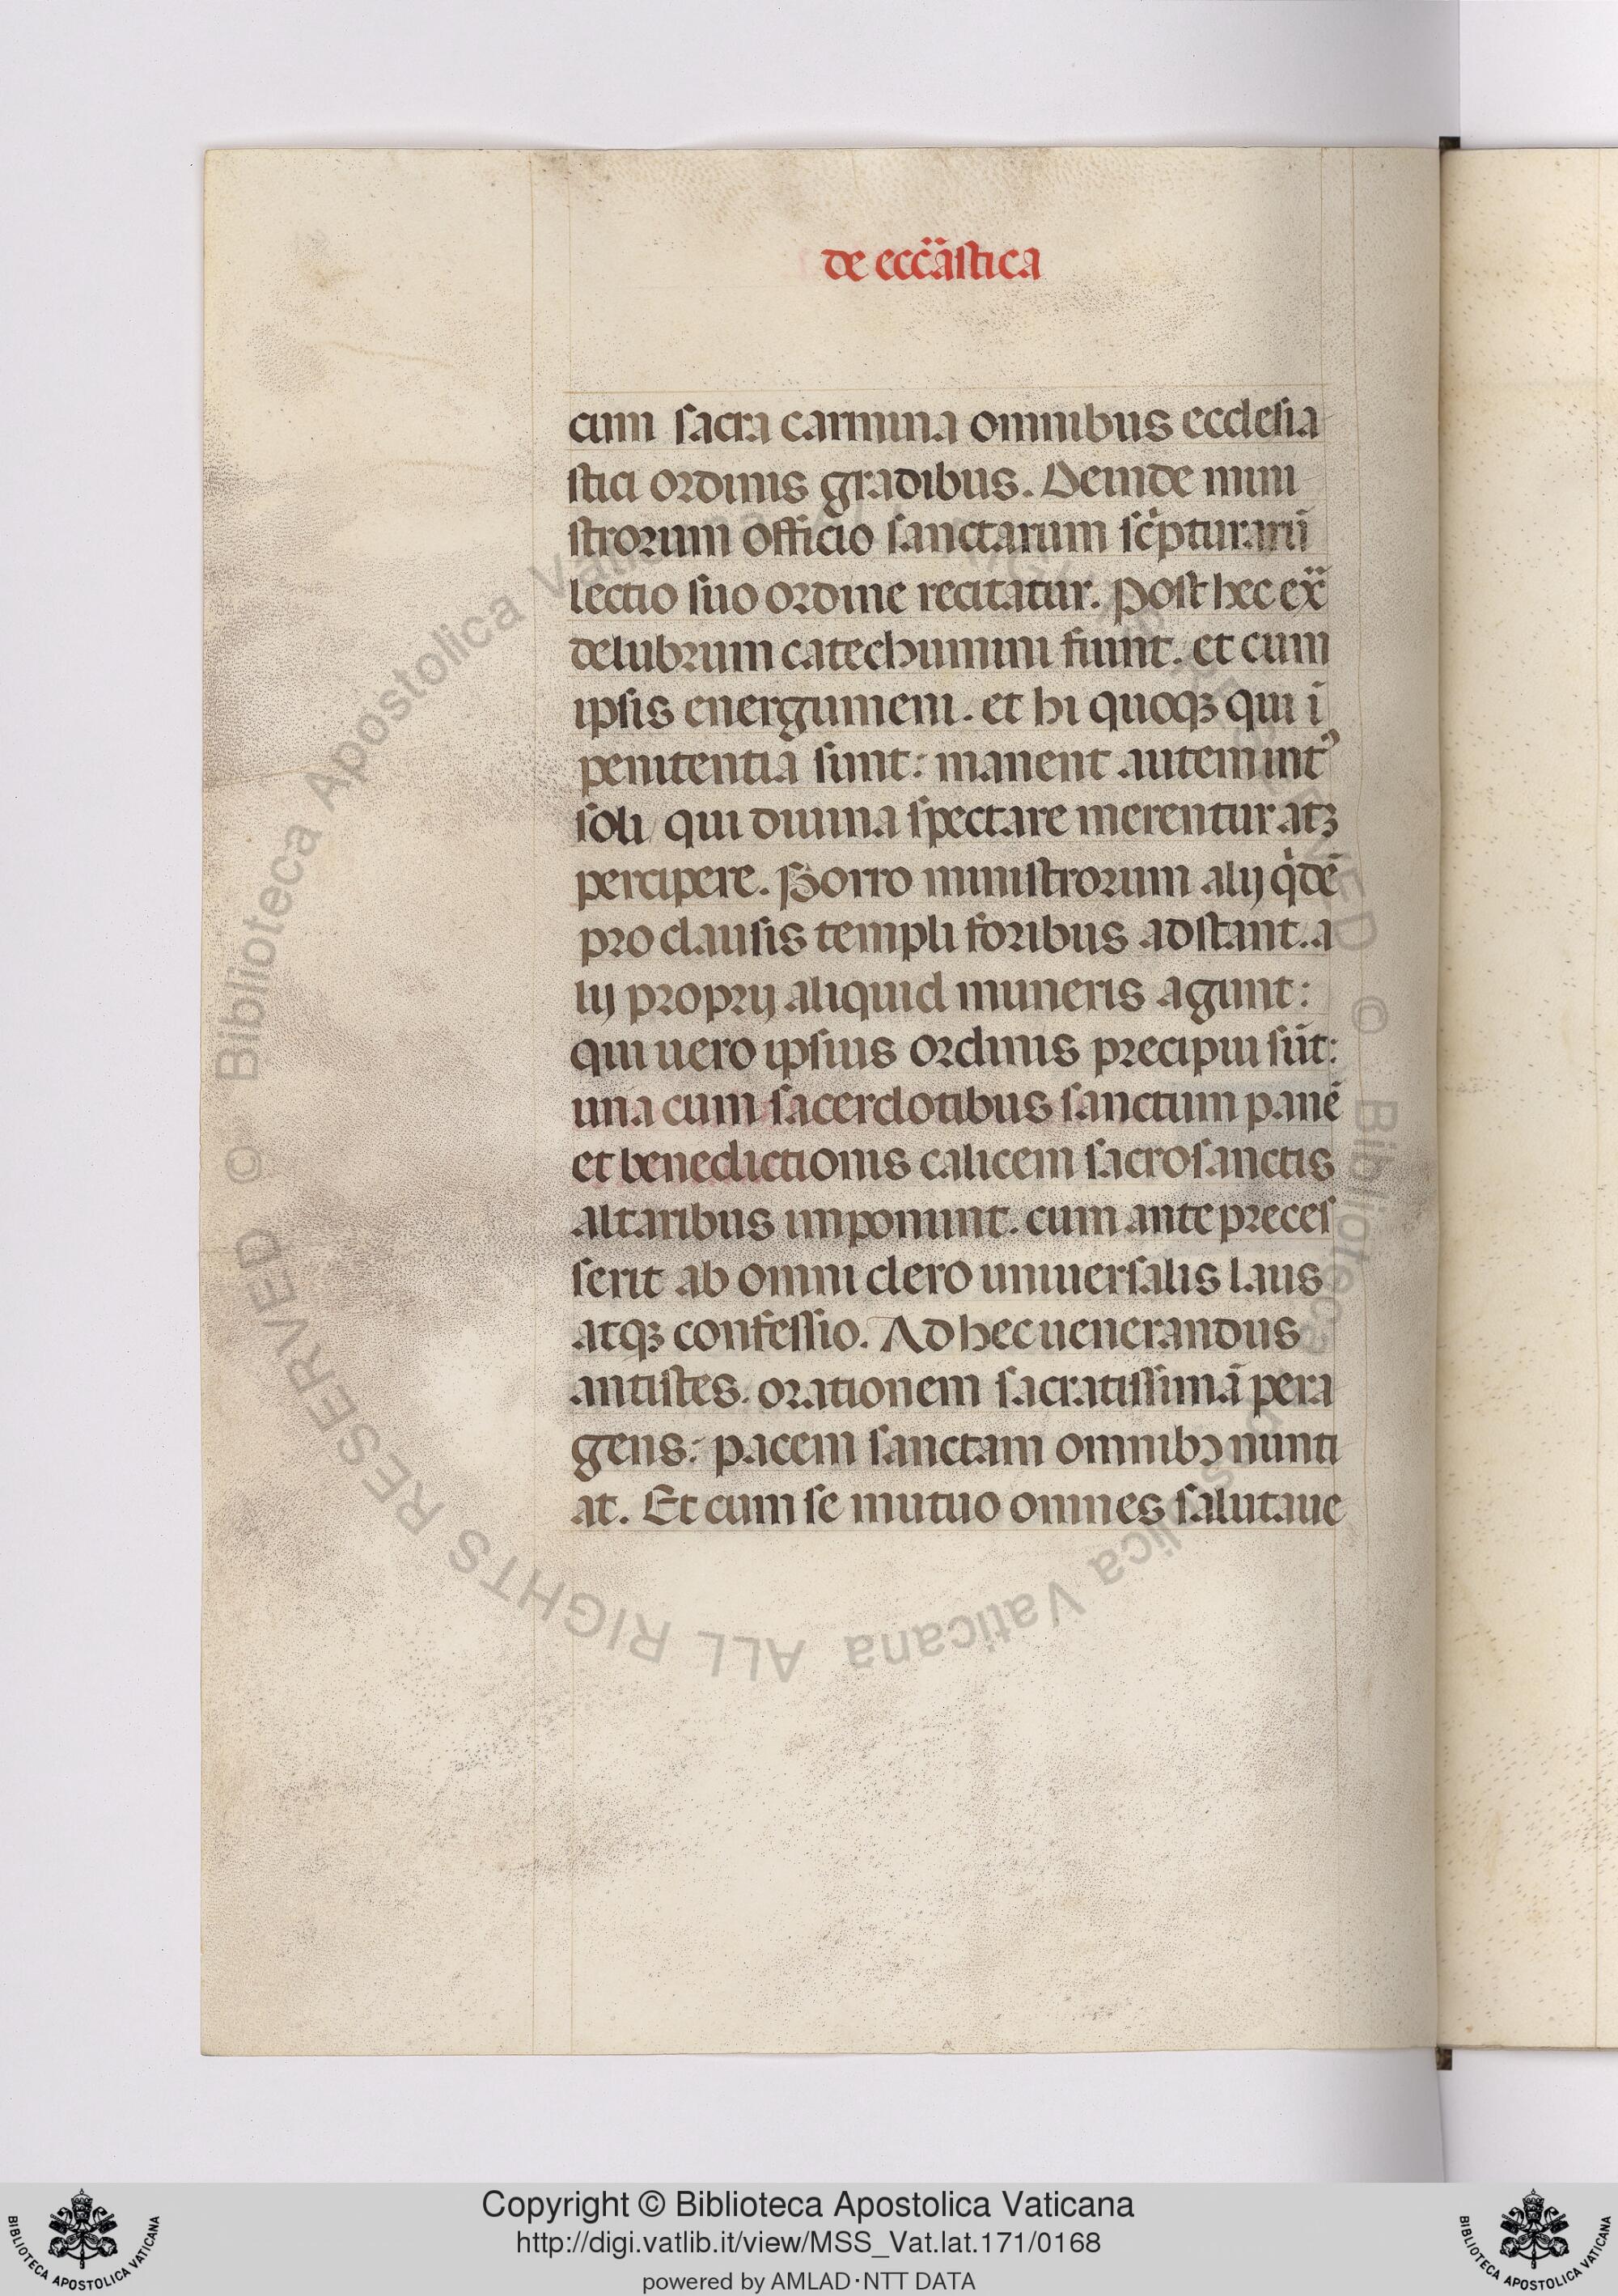 de ecc̄ästica
cum sacra carmina omnibus ecclesia
stici ordinis gradibus. Deinde mini
strorum officio sanctarum sc̓pturarū
lectio suo ordine recitatur. Post hec ex̄
delubrum catechumini fiunt. et cum
ipsis energumeni. et hi quoqꝫ qui ī
penitentia sunt: manent autem int᾽
soli qui diuina spectare merentur atꝫ
percipere. Porro ministrorum alij q̓dē
pro clausis templi foribus adstant. a
lij proprij aliquid muneris agunt:
qui uero ipsius ordinis precipui sūt:
una cum sacerdotibus sanctum panē
et benedictionis calicem sacrosanctis
altaribus imponunt. cum ante preces
serit ab omni clero uniuersalis laus
atqꝫ confessio. Ad hec uenerandus
antistes. orationem sacratissimā pera
gens: pacem sanctam omnibꝰ nunti
at. Et cum se mutuo omnes salutaue
Copyright © Biblioteca Apostolica Vaticana
http://digi.vatlib.it/view/MSS_Vat.lat.171/0168
powered by AMLAD·NTT DATA
BIBLIOTECA APOSTOLICA VATICANA
BIBLIOTECA APOSTOLICA VATICANA
© Biblioteca Apostolica Vaticana ALL RIGHTS RESERVED © Biblioteca Apostolica Vaticana ALL RIGHTS RESERVED